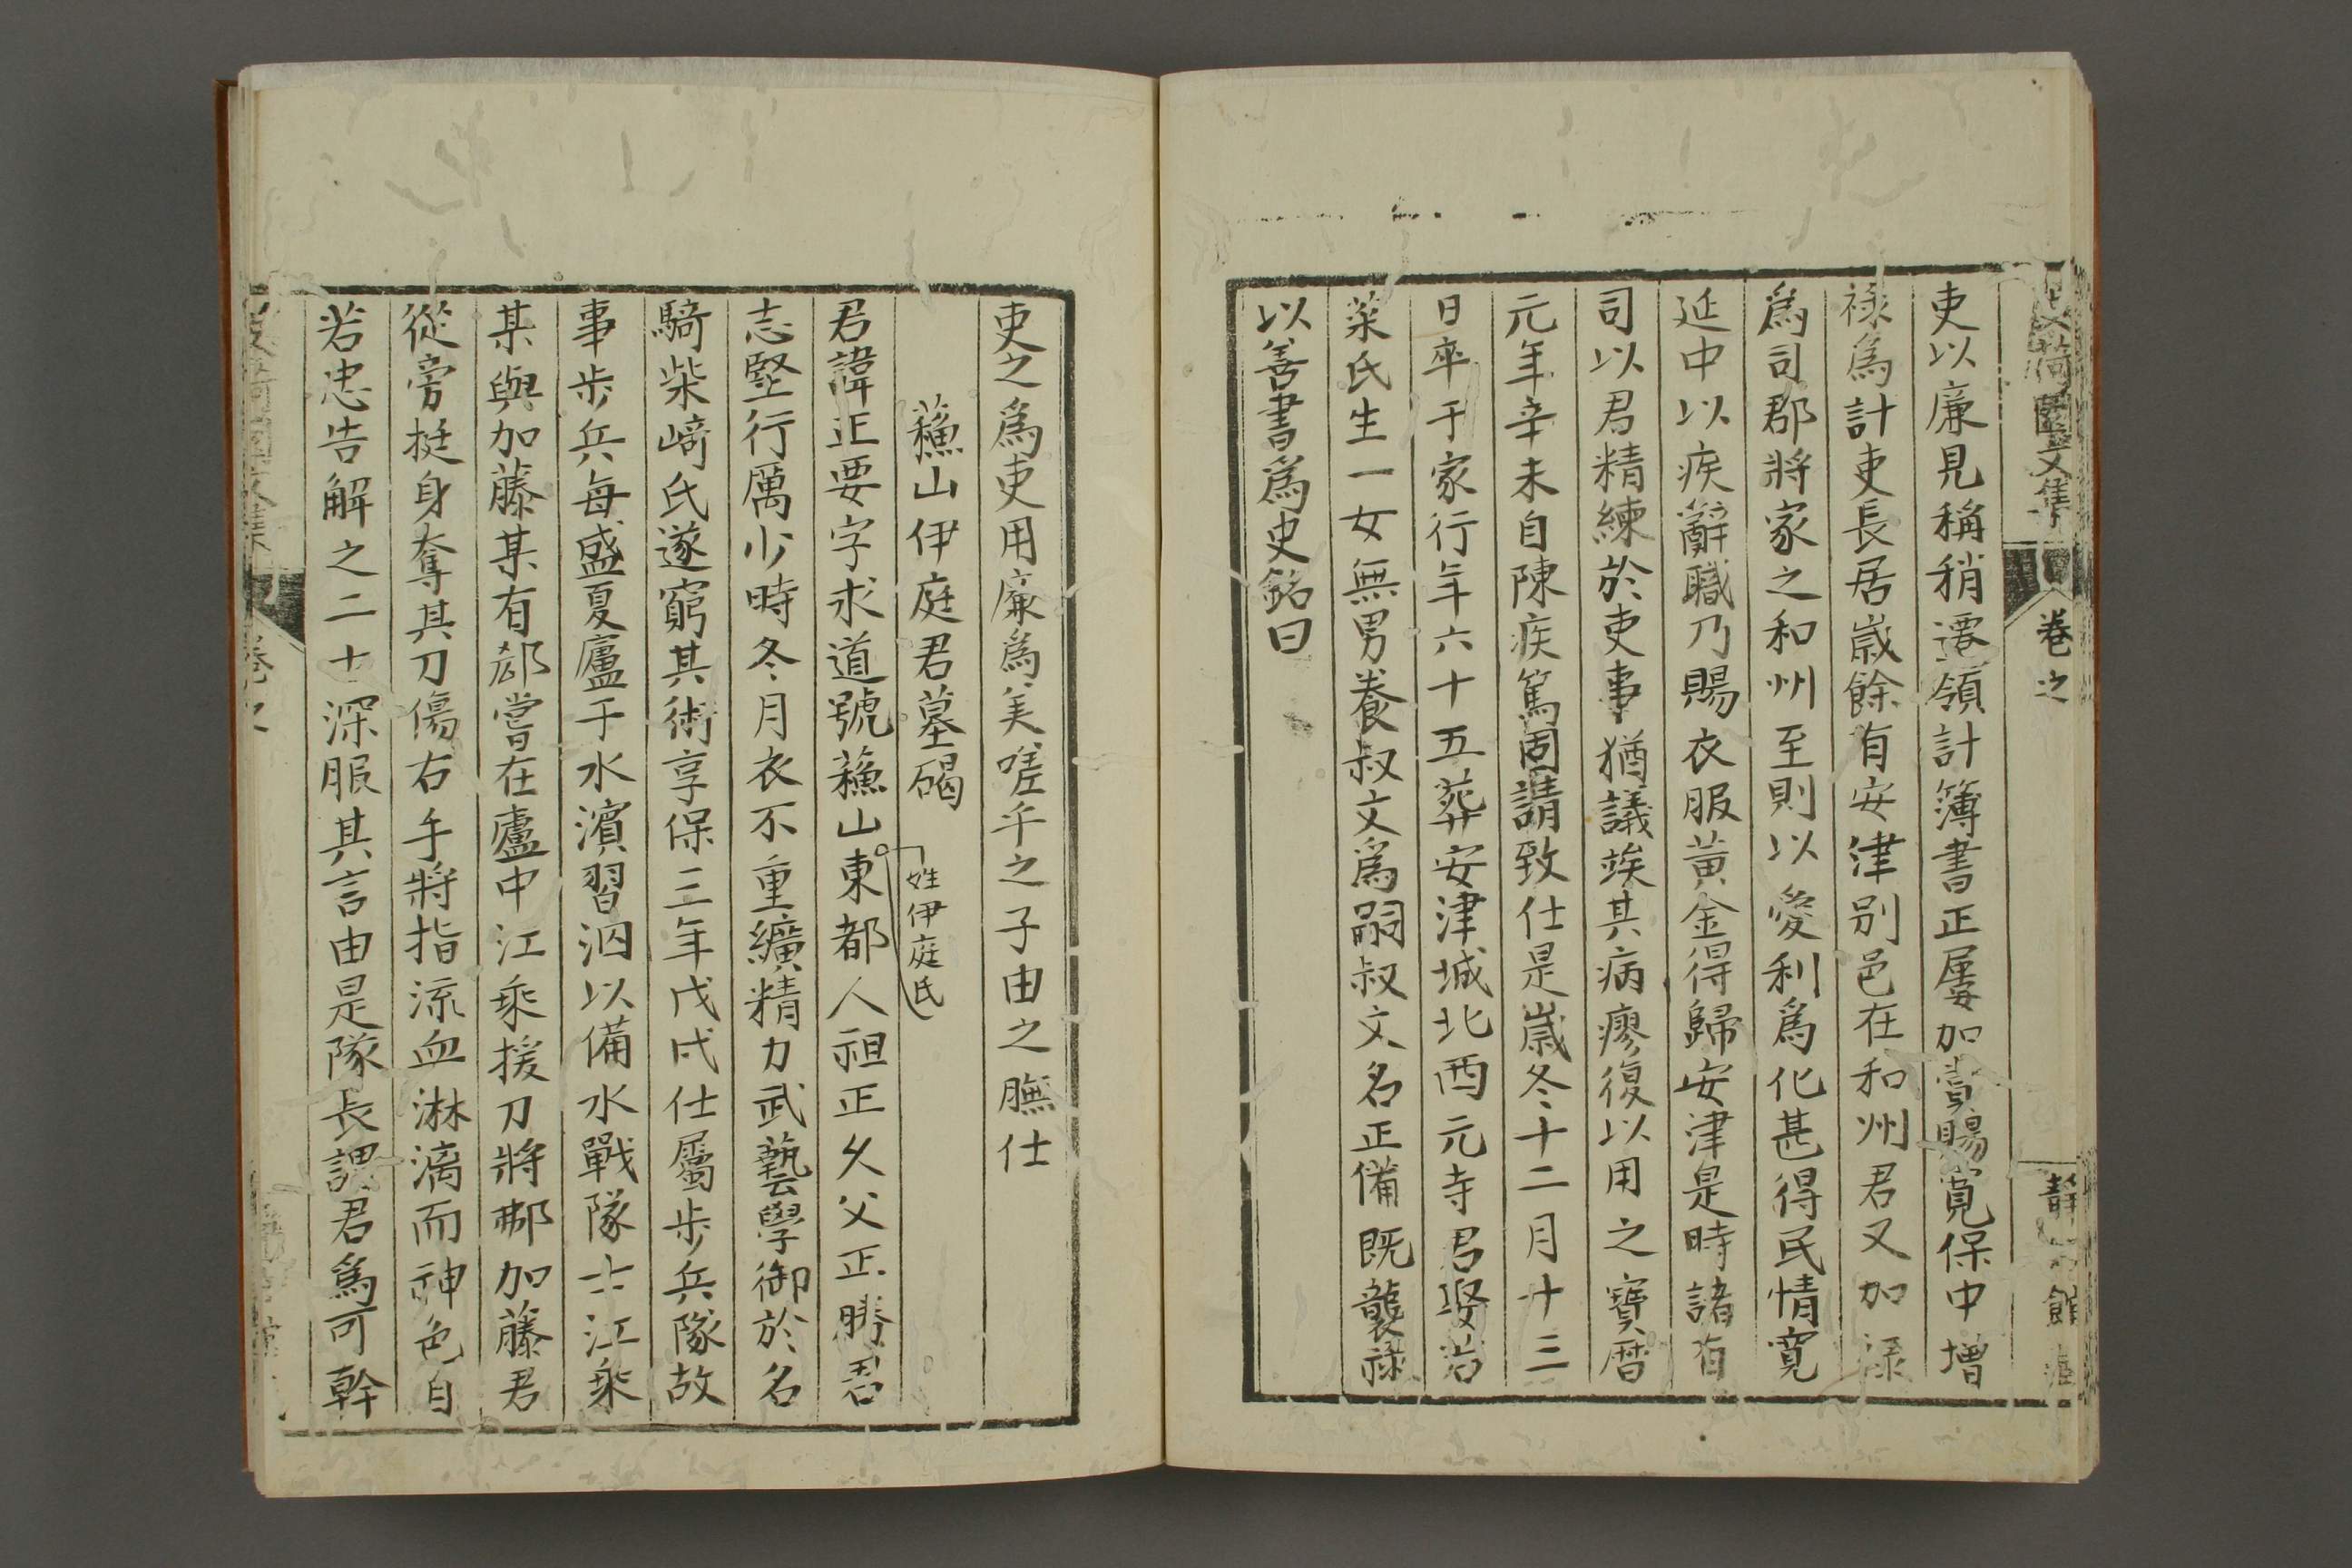 吏以廉見稱稍遷領計簿書正屢加賞賜寛保中增
祿爲計吏長居歲餘有安津別邑在和州君又加祿
爲司郡將家之和州至則以愛利爲化甚得民情寛
延中以疾辭職乃賜衣服黄金得歸安津是時諸有
司以君精練於吏事猶議竢其病瘳復以用之寶曆
元年辛未自陳疾篤固請致仕是歲冬十二月十三
日卒于家行年六十五葬安津城北西元寺君娶若
菜氏生一女無男養叔文爲嗣叔文名正備既襲祿
以善書爲史銘曰
吏之爲吏用廉爲美嗟乎之子由之膴仕
蘓山伊庭君墓碣
君諱正要字求道號蘓山東都人祖正久父正勝君
姓伊庭氏
志堅行厲少時冬月衣不重纊精力武藝學御於名
騎柴﨑氏遂窮其術享保三年戊戌仕屬步兵隊故
事步兵每盛夏廬于水濱習泅以備水戰隊士江乘
某與加藤某有郄嘗在廬中江乘援刀將斫加藤君
從旁挺身奪其刀傷右手將指流血淋漓而神色自
若忠告解之二士深服其言由是隊長謂君爲可幹
卷之